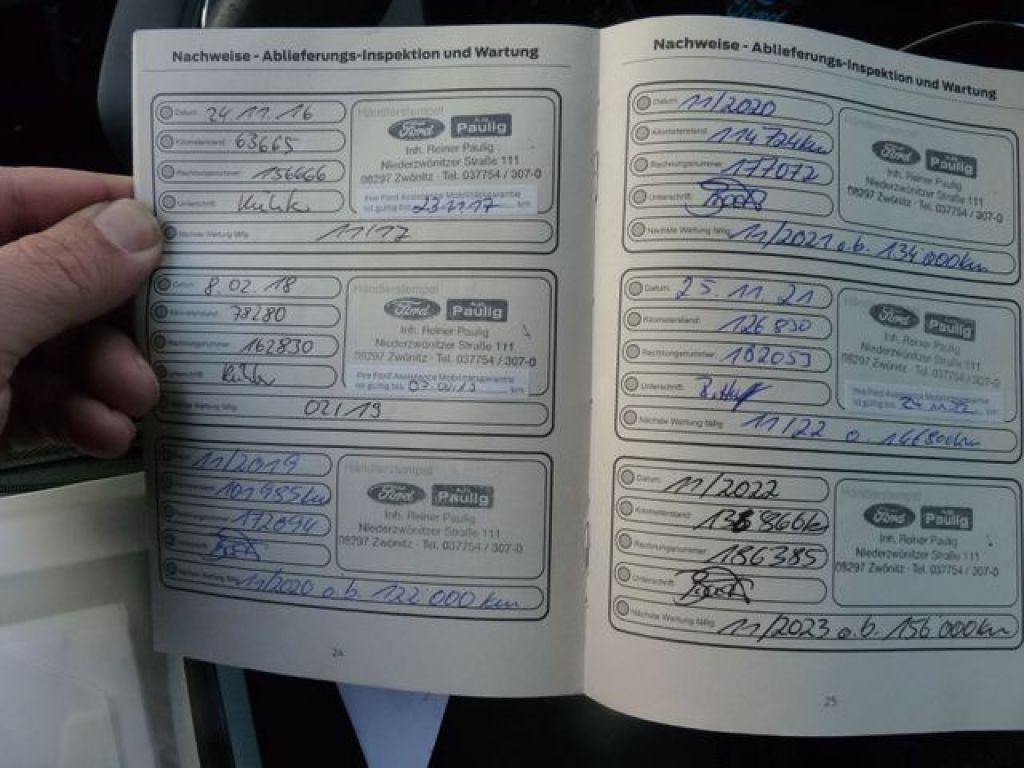 Nachweise - Ablieferungs-Inspektion und Wartung
Datum: 24 11. 16
Händlerstempel
Ford
Paulig
Kilometerstand: 63665
Inh. Reiner Paulig
Niederzwönitzer Straße 111
Rechnungsnummer: 156666
08297 Zwönitz · Tel. 037754 / 307-0
Unterschrift:
Ihre Ford Assistance Mobilitätsgarantie
ist gültig bis 23.11.17 km
Nächste Wartung fällig: 11/17
Datum: 8. 02. 18
Händlerstempel
Ford
Paulig
Kilometerstand: 78280
Inh. Reiner Paulig
Niederzwönitzer Straße 111
Rechnungsnummer: 162830
08297 Zwönitz · Tel. 037754 / 307-0
Unterschrift:
Ihre Ford Assistance Mobilitätsgarantie
ist gültig bis km
Wartung fällig: 02/19
11/2019
Händlerstempel
Ford
Paulig
101985km
Inh. Reiner Paulig
Niederzwönitzer Straße 111
172094
08297 Zwönitz · Tel. 037754 / 307-0
Nächste Wartung fällig: 11/2020 o.b. 122 000 km
24
Nachweise - Ablieferungs-Inspektion und Wartung
Datum: 11/2020
Händlerstempel
Ford
Paulig
Kilometerstand: 114724km
Inh. Reiner Paulig
Rechnungsnummer: 177072
Niederzwönitzer Straße 111
08297 Zwönitz · Tel. 037754 / 307-0
Unterschrift:
Nächste Wartung fällig: 11/2021 o.b. 134 000km
Datum: 25. 11. 21
Händlerstempel
Ford
Paulig
Kilometerstand: 126830
Inh. Reiner Paulig
Niederzwönitzer Straße 111
Rechnungsnummer: 182053
08297 Zwönitz · Tel. 037754 / 307-0
Unterschrift:
Ihre Ford Assistance Mobilitätsgarantie
ist gültig bis 24.11.22 km
Nächste Wartung fällig: 11/22 o. 146800km
Datum: 11/2022
Händlerstempel
Ford
Paulig
Kilometerstand:
Inh. Reiner Paulig
Niederzwönitzer Straße 111
Rechnungsnummer: 186385
08297 Zwönitz · Tel. 037754 / 307-0
Unterschrift:
Nächste Wartung fällig: 11/2023 o.b. 156 000km
25